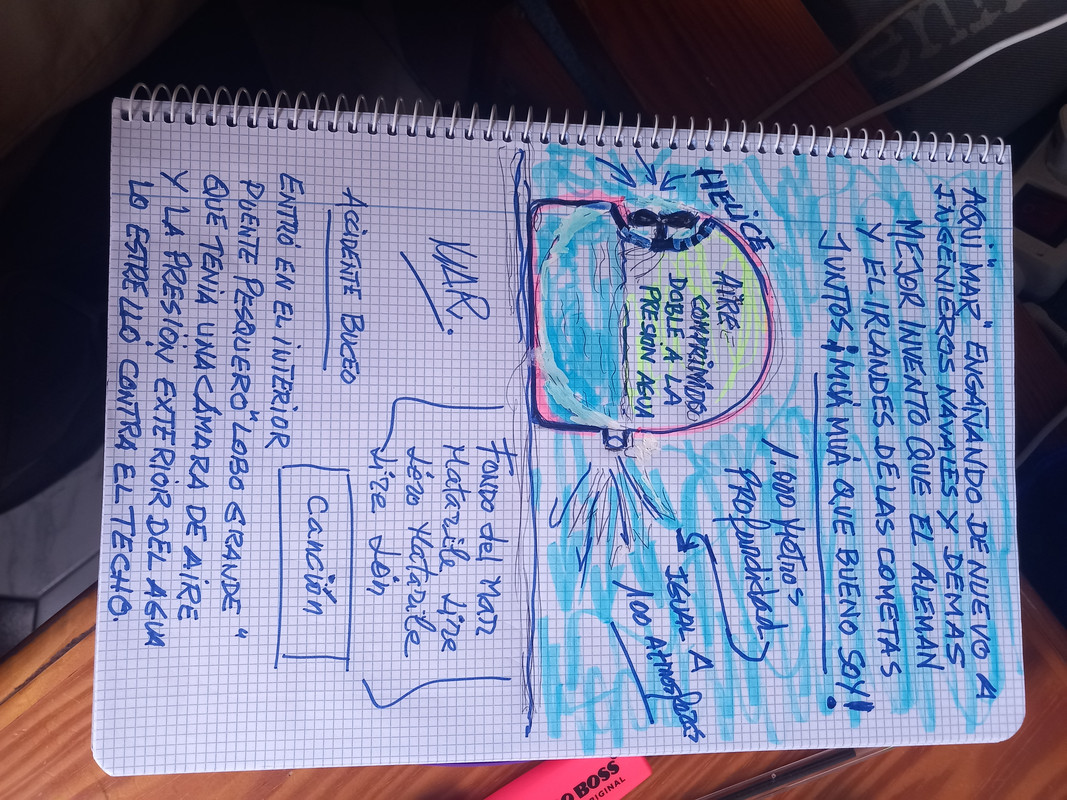 AQUÍ "MAR" ENGAÑANDO DE NUEVO A
INGENIEROS NAVALES Y DEMAS
MEJOR INVENTO QUE EL ALEMAN
Y EL IRLANDES DE LAS COMETAS
JUNTOS ¡MUÁ MUÁ QUE BUENO SOY!
HELICE
AIRE =
COMPRIMIDO
DOBLE A LA
PRESION AGUA
1.000 Metros
Profundidad
IGUAL A
100 Atmosferas
MAR.
Fondo del Mar
Matarile lire
lero Matarile
lire lón
ACCIDENTE BUCEO
Canción
ENTRÓ EN EL INTERIOR
PUENTE PESQUERO "LOBO GRANDE"
QUE TENIA UNA CÁMARA DE AIRE
Y LA PRESIÓN EXTERIOR DEL AGUA
LO ESTRELLÓ CONTRA EL TECHO.
BOSS
ORIGINAL